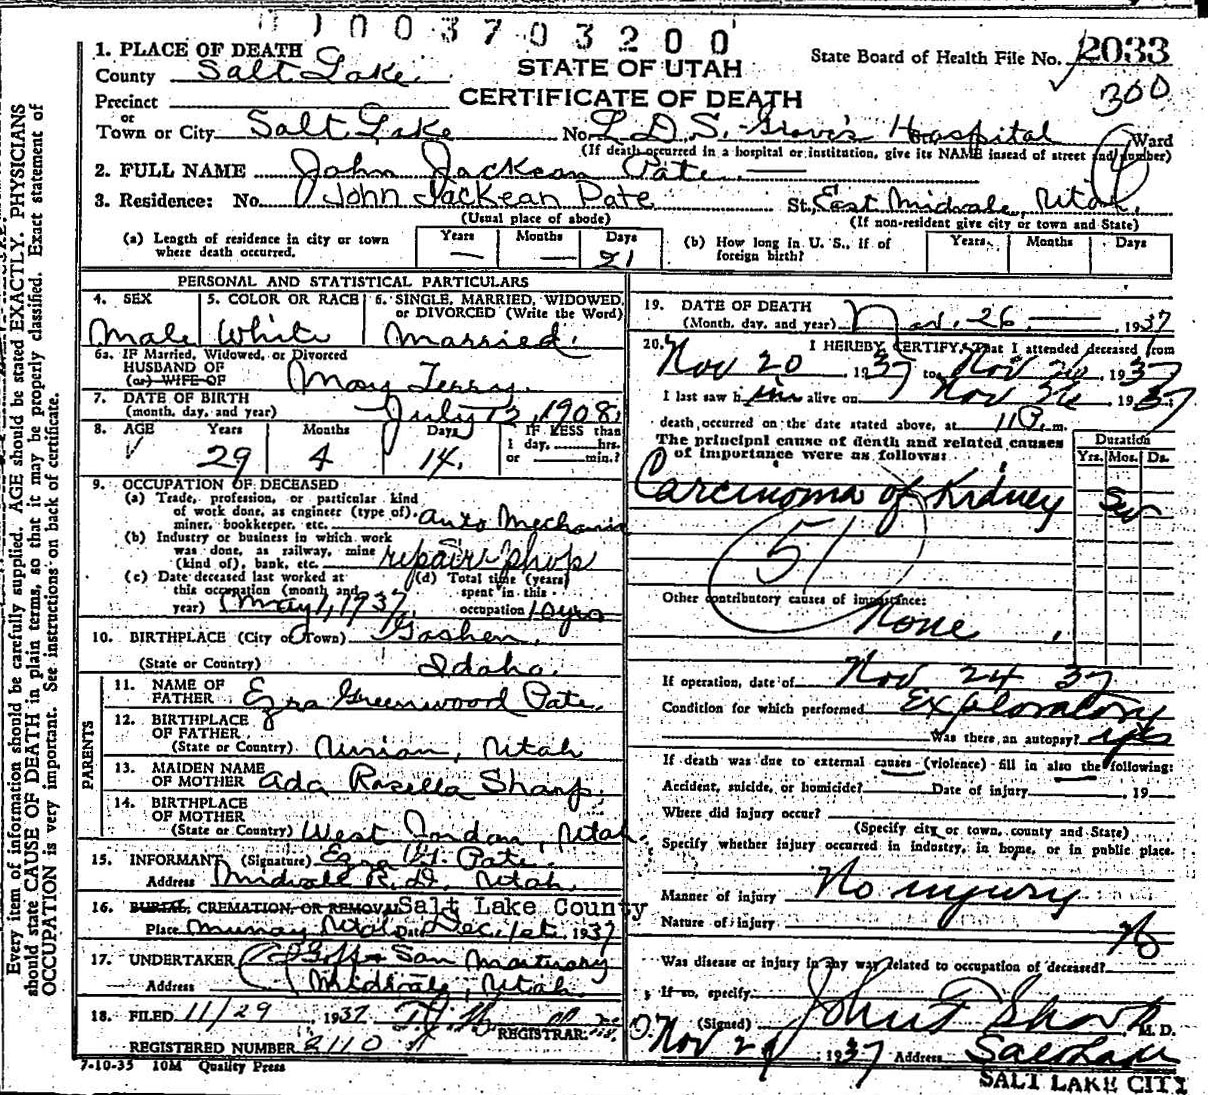 0 1 0 0 3 7 0 3 2 0 0
1. PLACE OF DEATH
County Salt Lake
STATE OF UTAH
State Board of Health File No. 2033
CERTIFICATE OF DEATH
300
Precinct
or
Town or City Salt Lake No. L.D.S. Groves Hospital Ward
(If death occurred in a hospital or institution, give its NAME insead of street and number)
4
2. FULL NAME John Jackean Pate
3. Residence: No. John Jackean Pate St. East Midvale, Utah.
(Usual place of abode) (If non-resident give city or town and State)
(a) Length of residence in city or town where death occurred. Years — Months — Days 21
(b) How long in U. S., if of foreign birth? Years Months Days
PERSONAL AND STATISTICAL PARTICULARS
4. SEX Male
5. COLOR OR RACE White
6. SINGLE, MARRIED, WIDOWED, or DIVORCED (Write the Word) Married.
6a. IF Married, Widowed, or Divorced
HUSBAND OF
(or) WIFE OF May Terry
7. DATE OF BIRTH
(month, day, and year) July 12, 1908
8. AGE Years 29 Months 4 Days 14.
IF LESS than
1 day, hrs.
or min.?
9. OCCUPATION OF DECEASED
(a) Trade, profession, or particular kind
of work done, as engineer (type of),
miner, bookkeeper, etc. Auto Mechanic
(b) Industry or business in which work
was done, as railway, mine
(kind of), bank, etc. repair shop
(c) Date deceased last worked at
this occupation (month and
year) May 1, 1937
(d) Total time (years)
spent in this
occupation 10 yrs
10. BIRTHPLACE (City or Town) Goshen,
(State or Country) Idaho.
PARENTS
11. NAME OF
FATHER Ezra Greenwood Pate
12. BIRTHPLACE
OF FATHER
(State or Country) Union, Utah
13. MAIDEN NAME
OF MOTHER Ada Rosella Sharp.
14. BIRTHPLACE
OF MOTHER
(State or Country) West Jordan, Utah.
15. INFORMANT (Signature) Ezra G. Pate
Address Midvale R.D. Utah.
16. BURIAL, CREMATION, OR REMOVAL Salt Lake County
Place Murray Utah Date Dec. 1st. 1937
17. UNDERTAKER Goff & Son Mortuary
Address Midvale, Utah.
18. FILED 11/29, 1937
REGISTRAR.
REGISTERED NUMBER 2110
7-10-35 10M Quality Press
19. DATE OF DEATH
(Month, day, and year) Nov. 26 — 1937
20. I HEREBY CERTIFY, That I attended deceased from
Nov 20 1937 to Nov 26, 1937
I last saw him alive on Nov 26 1937;
death occurred on the date stated above, at 11 P. m.
The principal cause of death and related causes
of importance were as follows:
Duration
Yrs. Mos. Ds.
Carcinoma of Kidney Sev
51
Other contributory causes of importance:
None
If operation, date of Nov 24 37
Condition for which performed Exploratory
Was there an autopsy? yes
If death was due to external causes (violence) fill in also the following:
Accident, suicide, or homicide? Date of injury , 19
Where did injury occur?
(Specify city or town, county and State)
Specify whether injury occurred in industry, in home, or in public place.
Manner of injury No injury
Nature of injury
Was disease or injury in any way related to occupation of deceased? No
If so, specify
(Signed) John F Sharp M. D.
Nov 29, 1937 Address Salt Lake
SALT LAKE CITY
Every item of information should be carefully supplied. AGE should be stated EXACTLY. PHYSICIANS
should state CAUSE OF DEATH in plain terms, so that it may be properly classified. Exact statement of
OCCUPATION is very important. See instructions on back of certificate.